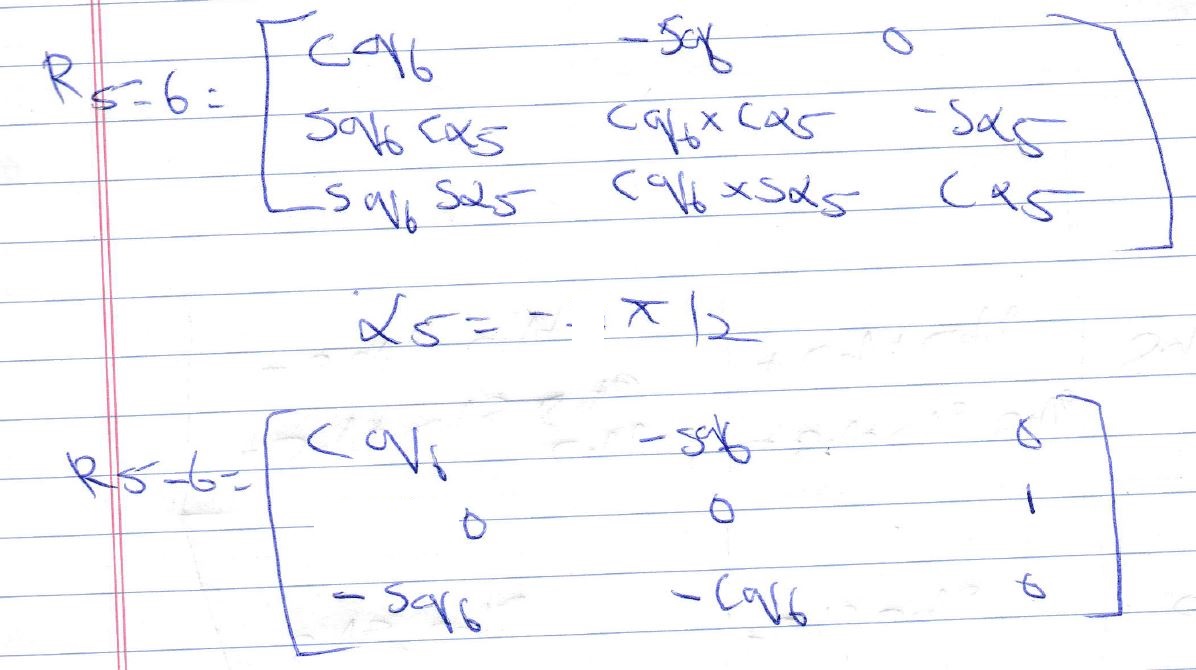 R5-6 = [ cq6 -sq6 0
sq6 cα5 cq6 × cα5 -sα5
sq6 sα5 cq6 × sα5 cα5 ]
α5 = - π/2
R5-6 = [ cq6 -sq6 0
0 0 1
-sq6 -cq6 0 ]